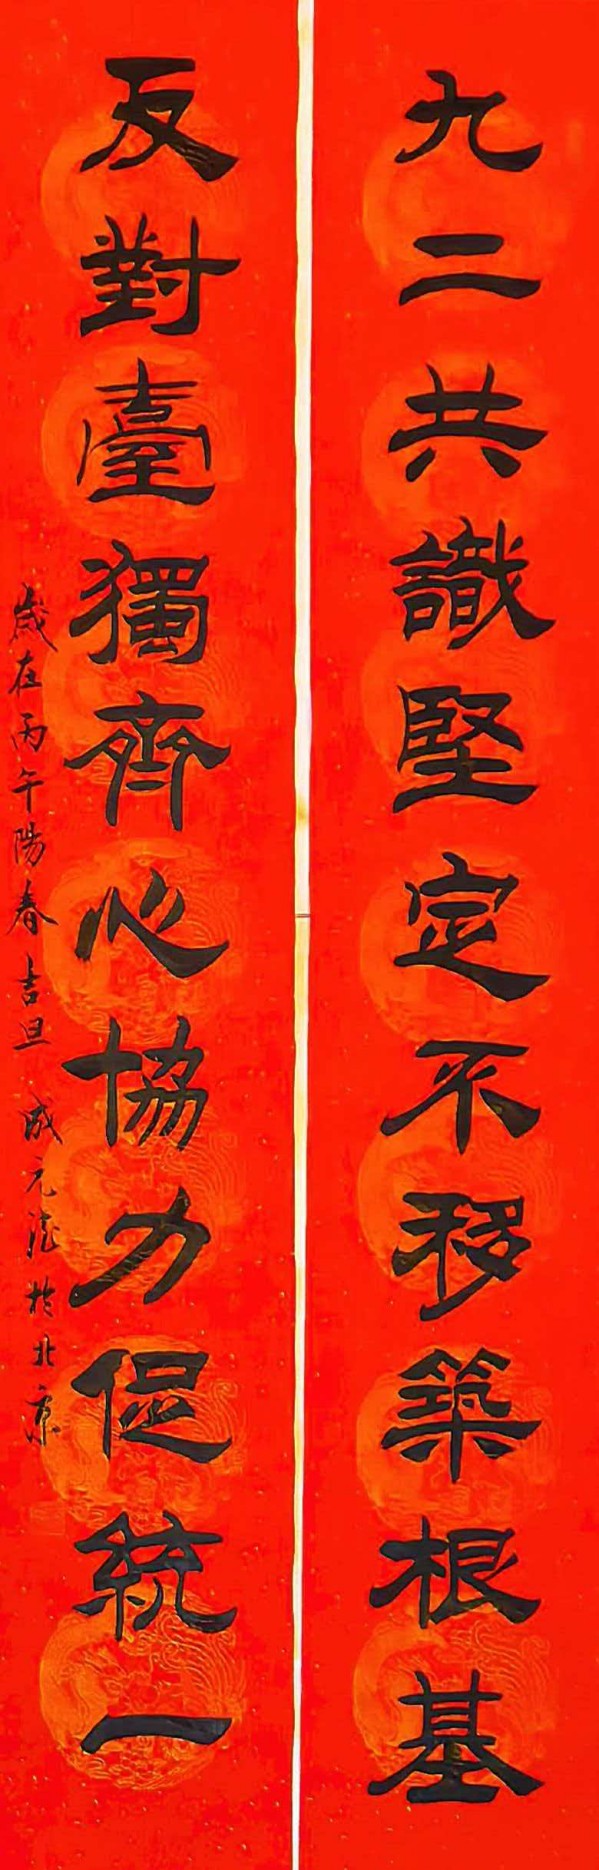 九二共識堅定不移築根基
反對臺獨齊心協力促統一
歲在丙午陽春吉旦 成元法於北京